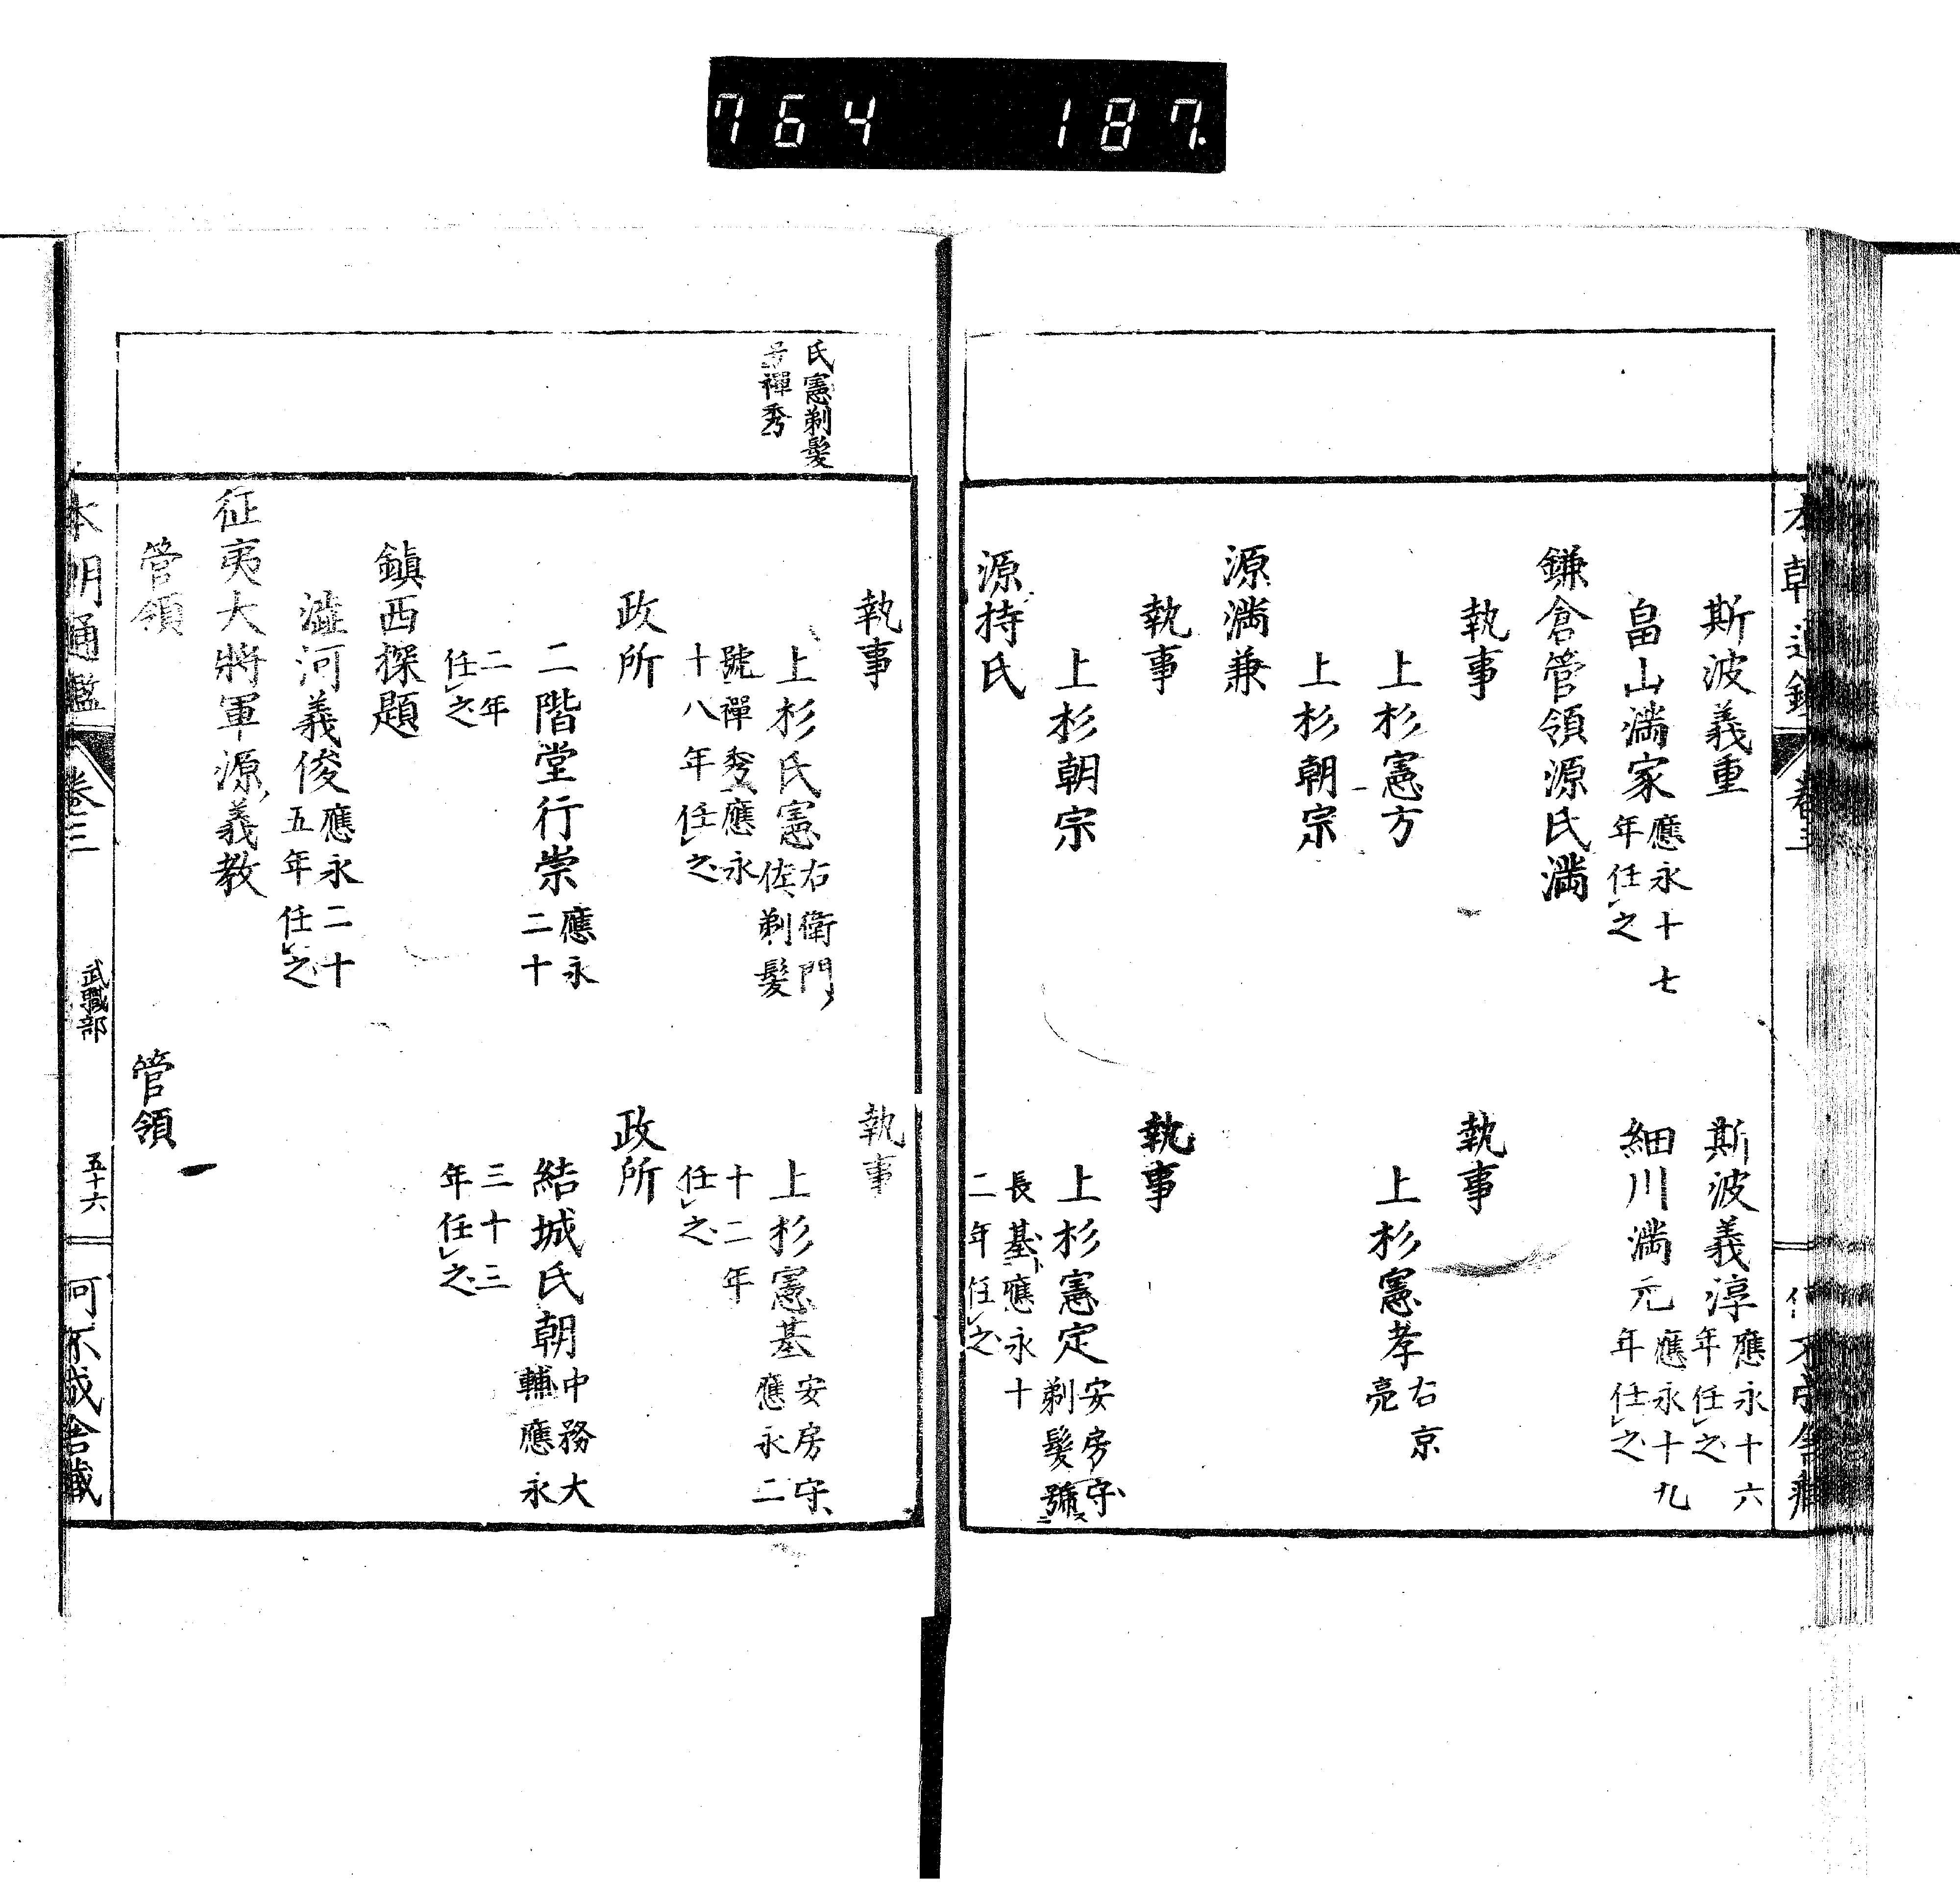 764 187
斯波義重
斯波義淳應永十六年任之
畠山満家應永十七年任之
細川満元應永十九年任之
鎌倉管領源氏満
執事
執事
上杉憲方
上杉憲孝右京亮
上杉朝宗
源満兼
執事
執事
上杉朝宗
上杉憲定安房守剃髮號
長基應永十二年任之
源持氏
氏憲剃髮
号禪秀
執事
執事
上杉氏憲右衛門佐剃髮
上杉憲基安房守應永二
號禪秀應永十八年任之
十二年任之
政所
政所
二階堂行崇應永二十
結城氏朝中務大輔應永
二年任之
三十三年任之
鎮西探題
澁河義俊應永二十五年任之
征夷大將軍源義教
管領
管領
本朝通鑑 卷三 武職部 五十六